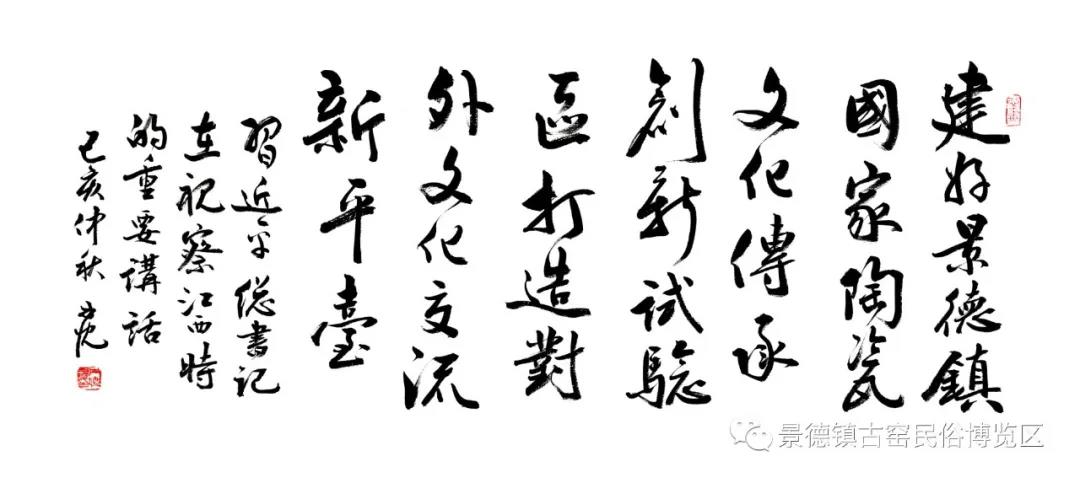 建好景德鎮
國家陶瓷
文化傳承
創新試驗
區打造對
外文化交流
新平臺
習近平總書記
在視察江西時
的重要講話
己亥仲秋
景德镇古窑民俗博览区